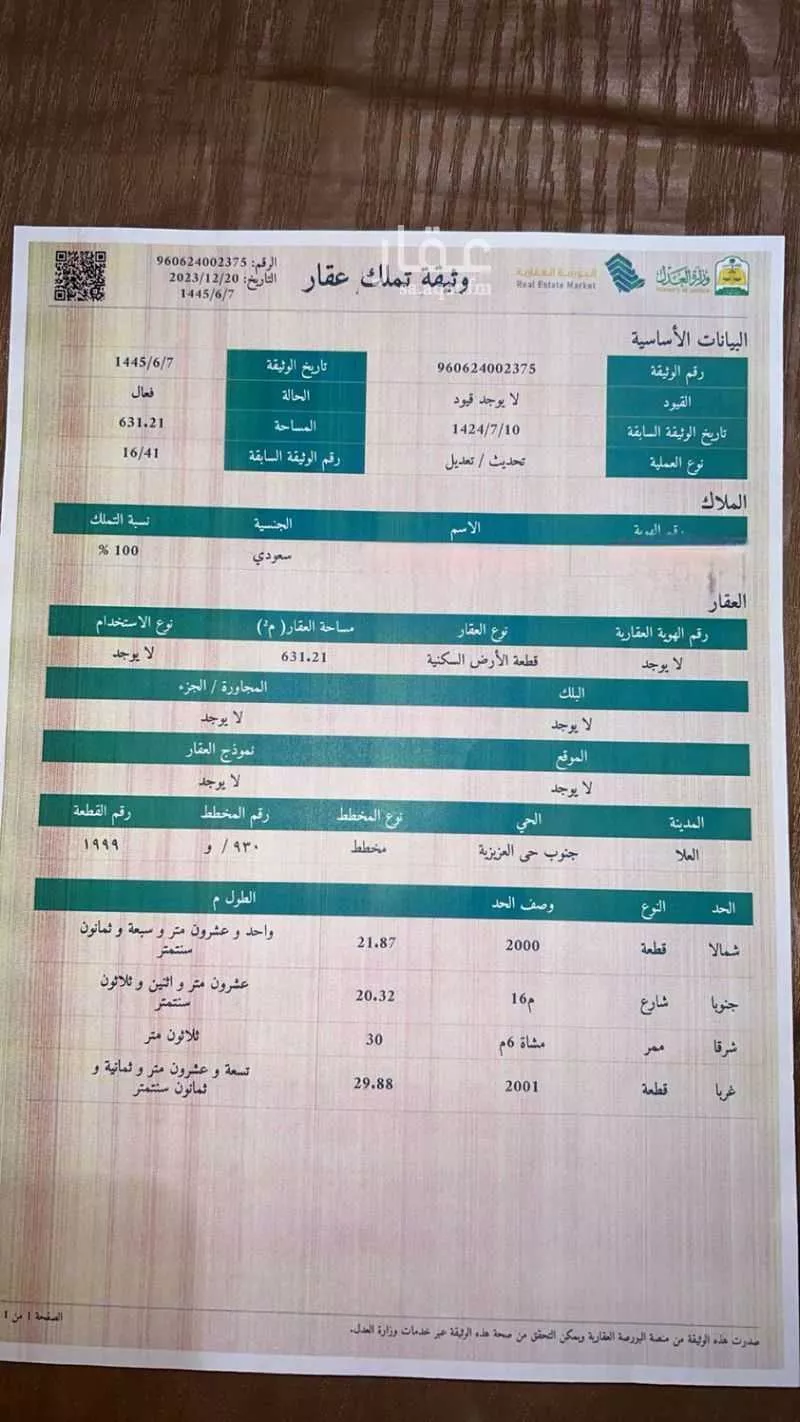 وزارة العدل
البورصة العقارية
Real Estate Market
عقار
وثيقة تملك عقار
الرقم: 960624002375
التاريخ: 2023/12/20
1445/6/7
البيانات الأساسية
رقم الوثيقة 960624002375 تاريخ الوثيقة 1445/6/7
القيود لا يوجد قيود الحالة فعال
تاريخ الوثيقة السابقة 1424/7/10 المساحة 631.21
نوع العملية تحديث / تعديل رقم الوثيقة السابقة 16/41
الملاك
رقم الهوية الاسم الجنسية نسبة التملك
سعودي 100 %
العقار
رقم الهوية العقارية نوع العقار مساحة العقار( م²) نوع الاستخدام
لا يوجد قطعة الأرض السكنية 631.21 لا يوجد
البلك المجاورة / الجزء
لا يوجد لا يوجد
الموقع نموذج العقار
لا يوجد لا يوجد
المدينة الحي نوع المخطط رقم المخطط رقم القطعة
العلا جنوب حى العزيزية مخطط ٩٣٠ / و ١٩٩٩
الحد النوع وصف الحد الطول م
شمالا قطعة 2000 21.87 واحد و عشرون متر و سبعة و ثمانون
سنتمتر
جنوبا شارع م16 20.32 عشرون متر و اثنين و ثلاثون
سنتمتر
شرقا ممر مشاة 6م 30 ثلاثون متر
غربا قطعة 2001 29.88 تسعة و عشرون متر و ثمانية و
ثمانون سنتمتر
صدرت هذه الوثيقة من منصة البورصة العقارية ويمكن التحقق من صحة هذه الوثيقة عبر خدمات وزارة العدل.
الصفحة 1 من 1